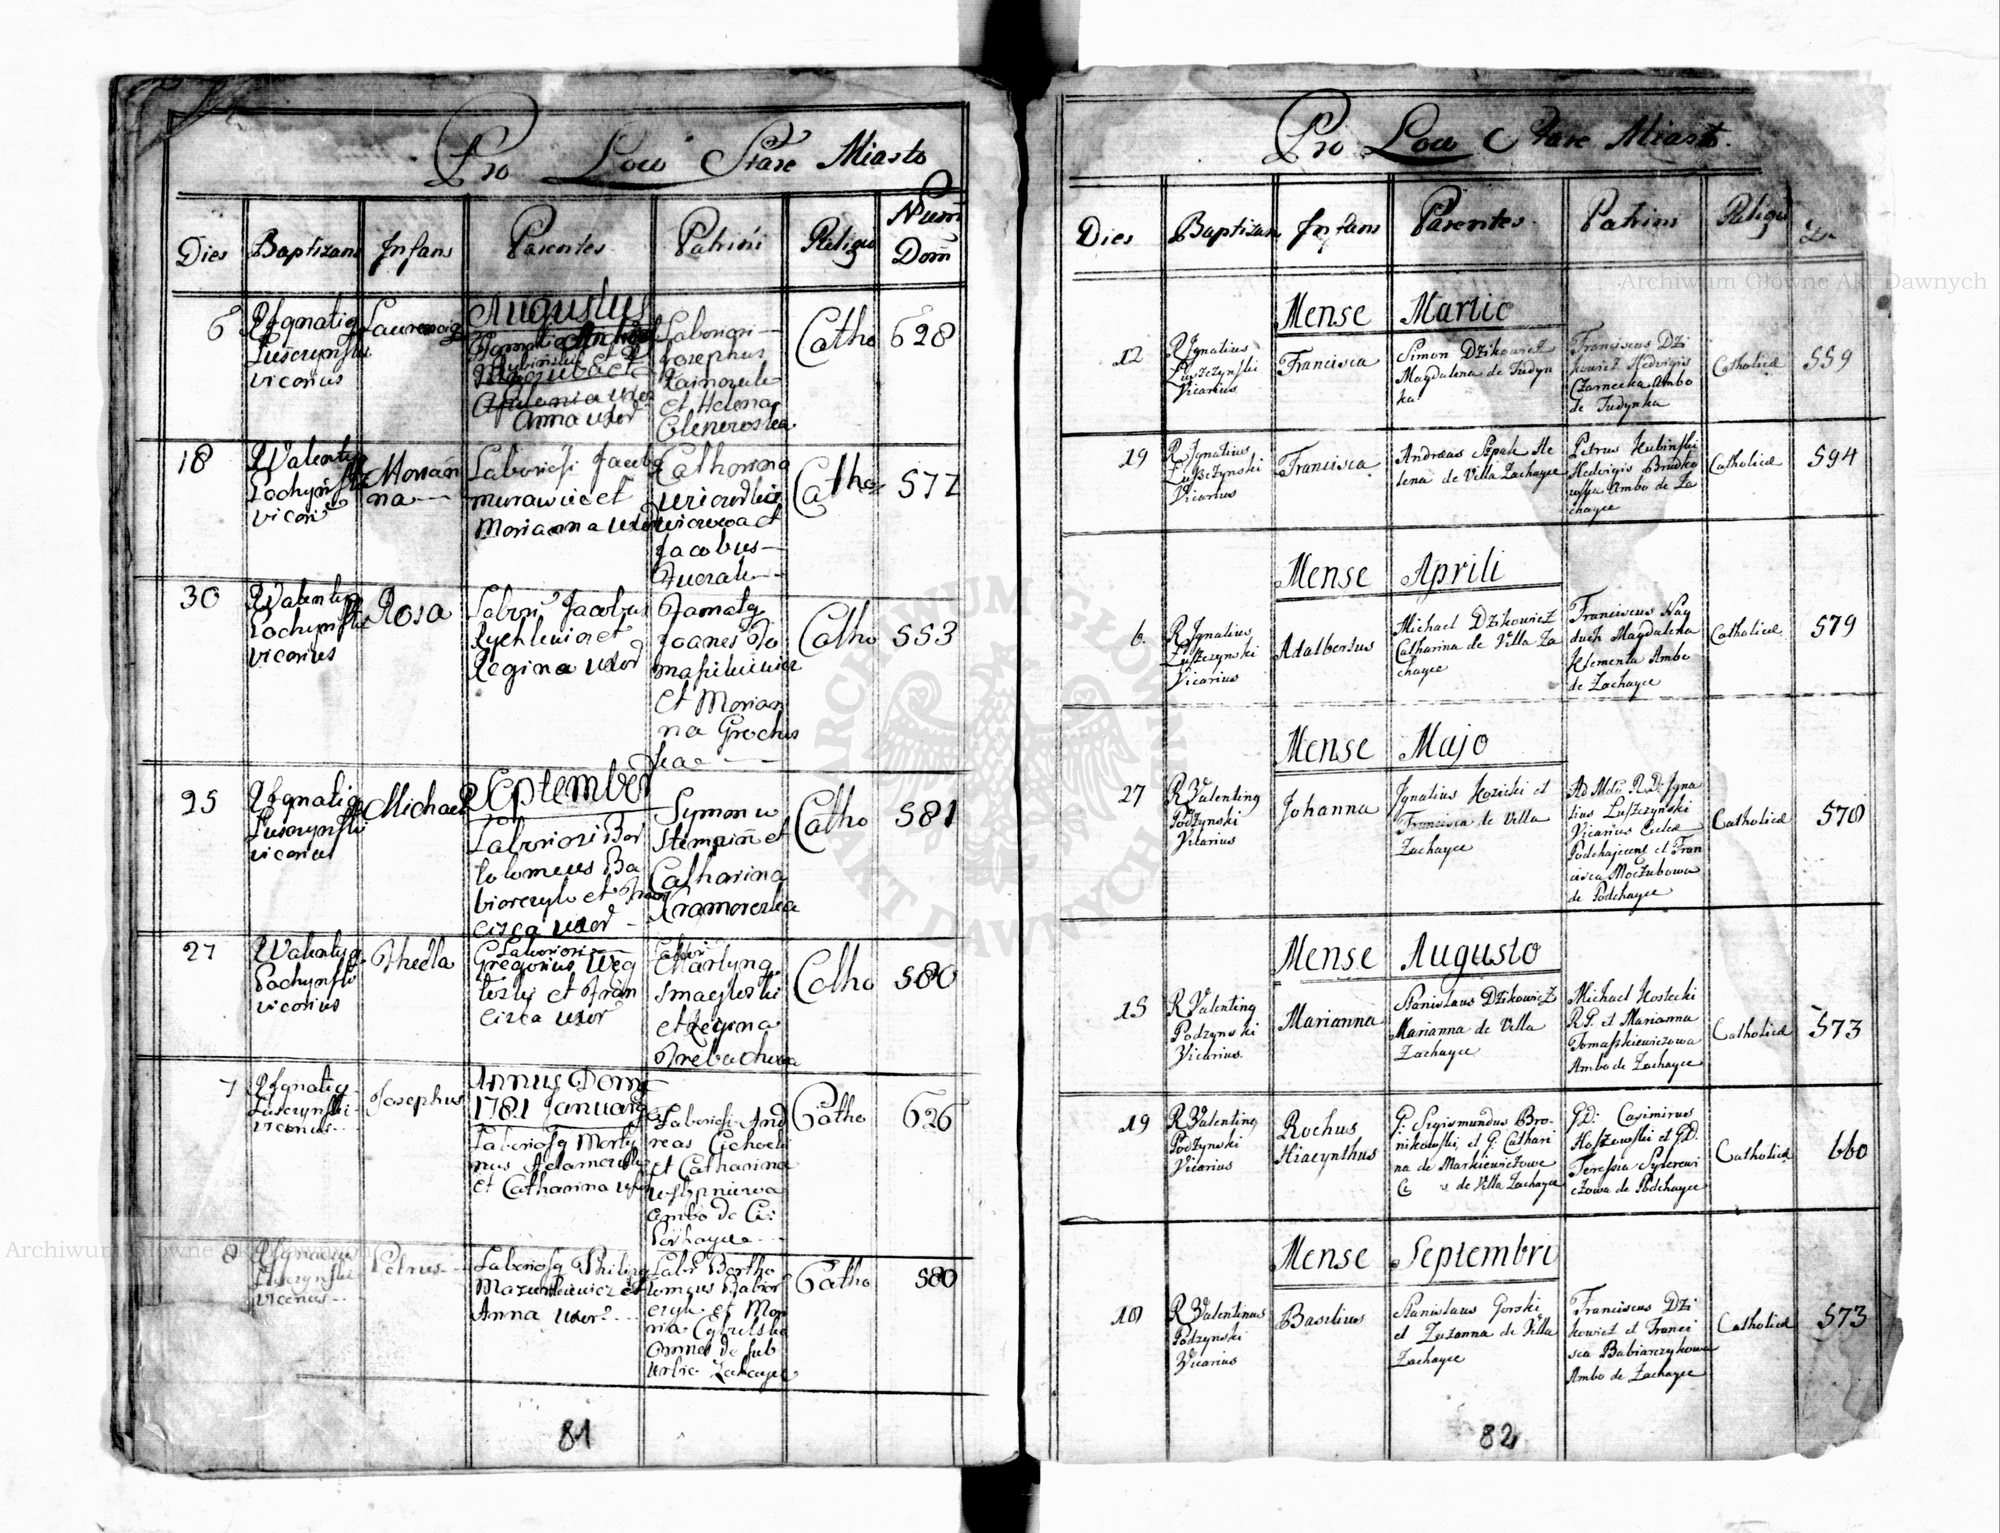 Pro Loco Stare Miasto
Dies Baptizans Infans Parentes Patrini Religio Num Dom
Augustus
6
R Ignatig
Luscrynski
vicarius
Laurenig
Anna uxor
Laboriosi
Josephus
et Helena
Catho
628
18
R Valentig
Pochynski
vicari
Marian
na
Laboriosi Jacobg
murawiec et
Marianna uxor
Catharina
Jacobus
Catho
577
30
R Valentig
Pochynski
vicarius
Rosa
Labori Jacobus
Rychlewior et
Regina uxor
Famatg
Joanes To
masiewicz
et Marian
na Grochus
ka
Catho
553
September
25
R Ignatig
Luscrynski
vicarius
Michael
Laboriosi Bar
tolomeus Ba
biarczyk et Fran
cisca uxor
Symon
Stempien et
Catharina
Kramorezka
Catho
581
27
R Valentig
Pochynski
vicarius
Thecla
Laboriosi
Gregorius Weg
lezky et Fran
cisca uxor
Martyng
Smagloski
et Regina
Trebachowa
Catho
580
Annus Dom
1781 Januarg
7
R Ignatig
Luscrynski
vicarius
Josephus
Laboriosg Marty
nus Adamczuk
et Catharina uxor
Laboriosi And
reas Cichocki
et Catharina
ambo de
Catho
626
8
R Ignacius
Luscrynski
vicarius
Petrus
Laboriosg Philipg
Mazurkiewicz et
Anna uxor
Labr Bartho
lomeus Babiar
czyk et Mari
na Cybulska
omnes de sub
urbio Zahayce
Catho
580
81
Pro Loco Stare Miasto.
Dies Baptizans Infans Parentes Patrini Religio
Mense Martio
12
R Ignatius
Luszczynski
Vicarius
Francisca
Simon Dzikowicz
Magdalena de Judyn
ka
Franciscus Dzi
kowicz Hedvigis
Czarnecka Ambo
de Judynka
Catholica
559
19
R Ignatius
Luszczynski
Vicarius
Francisca
Andreas Szpak He
lena de Villa Zachayce
Petrus Kubinski
Hedvigis Brudko
wska Ambo de Za
chayce
Catholica
594
Mense Aprili
6.
R Ignatius
Luszczynski
Vicarius
Adalbertus
Michael Dzikowicz
Catharina de Villa Za
chayce
Franciscus Hay
duch Magdalena
Klementa Ambo
de Zachayce
Catholica
579
Mense Majo
27
R Valenting
Podzynski
Vicarius
Johanna
Ignatius Kozicki et
Francisca de Villa
Zachayce
Ad Mdu R. D. Igna
tius Luszczynski
Vicarius Eccle
Podhajecens et Fran
cisca Moczubowa
de Podchayce
Catholica
570
Mense Augusto
15
R Valenting
Podzynski
Vicarius.
Marianna
Stanislaus Dzikowicz
Marianna de Villa
Zachayce
Michael Kostecki
R. P. et Marianna
Tomaszkiewiczowa
Ambo de Zachayce
Catholica
573
19
R Valenting
Podzynski
Vicarius
Rochus
Hiacynthus
G. Sigismundus Bro-
nikowski, et G. Cathari
na de Markiewiczowe
de Villa Zachayce
GD: Casimirus
Hoszowski et GD.
Teressia Sylerewi
czowa de Podchayce
Catholica
660
Mense Septembri
10
R Valentinus
Podzynski
Vicarius
Basilius
Stanislaus Gorski
et Zuzanna de Villa
Zachayce
Franciscus Dzi
kowicz et Franci
sca Babiarczykowa
Ambo de Zachayce
Catholica
573
82
Archiwum Główne Akt Dawnych
Archiwum Główne Akt Dawnych
ARCHIWUM GŁÓWNE AKT DAWNYCH